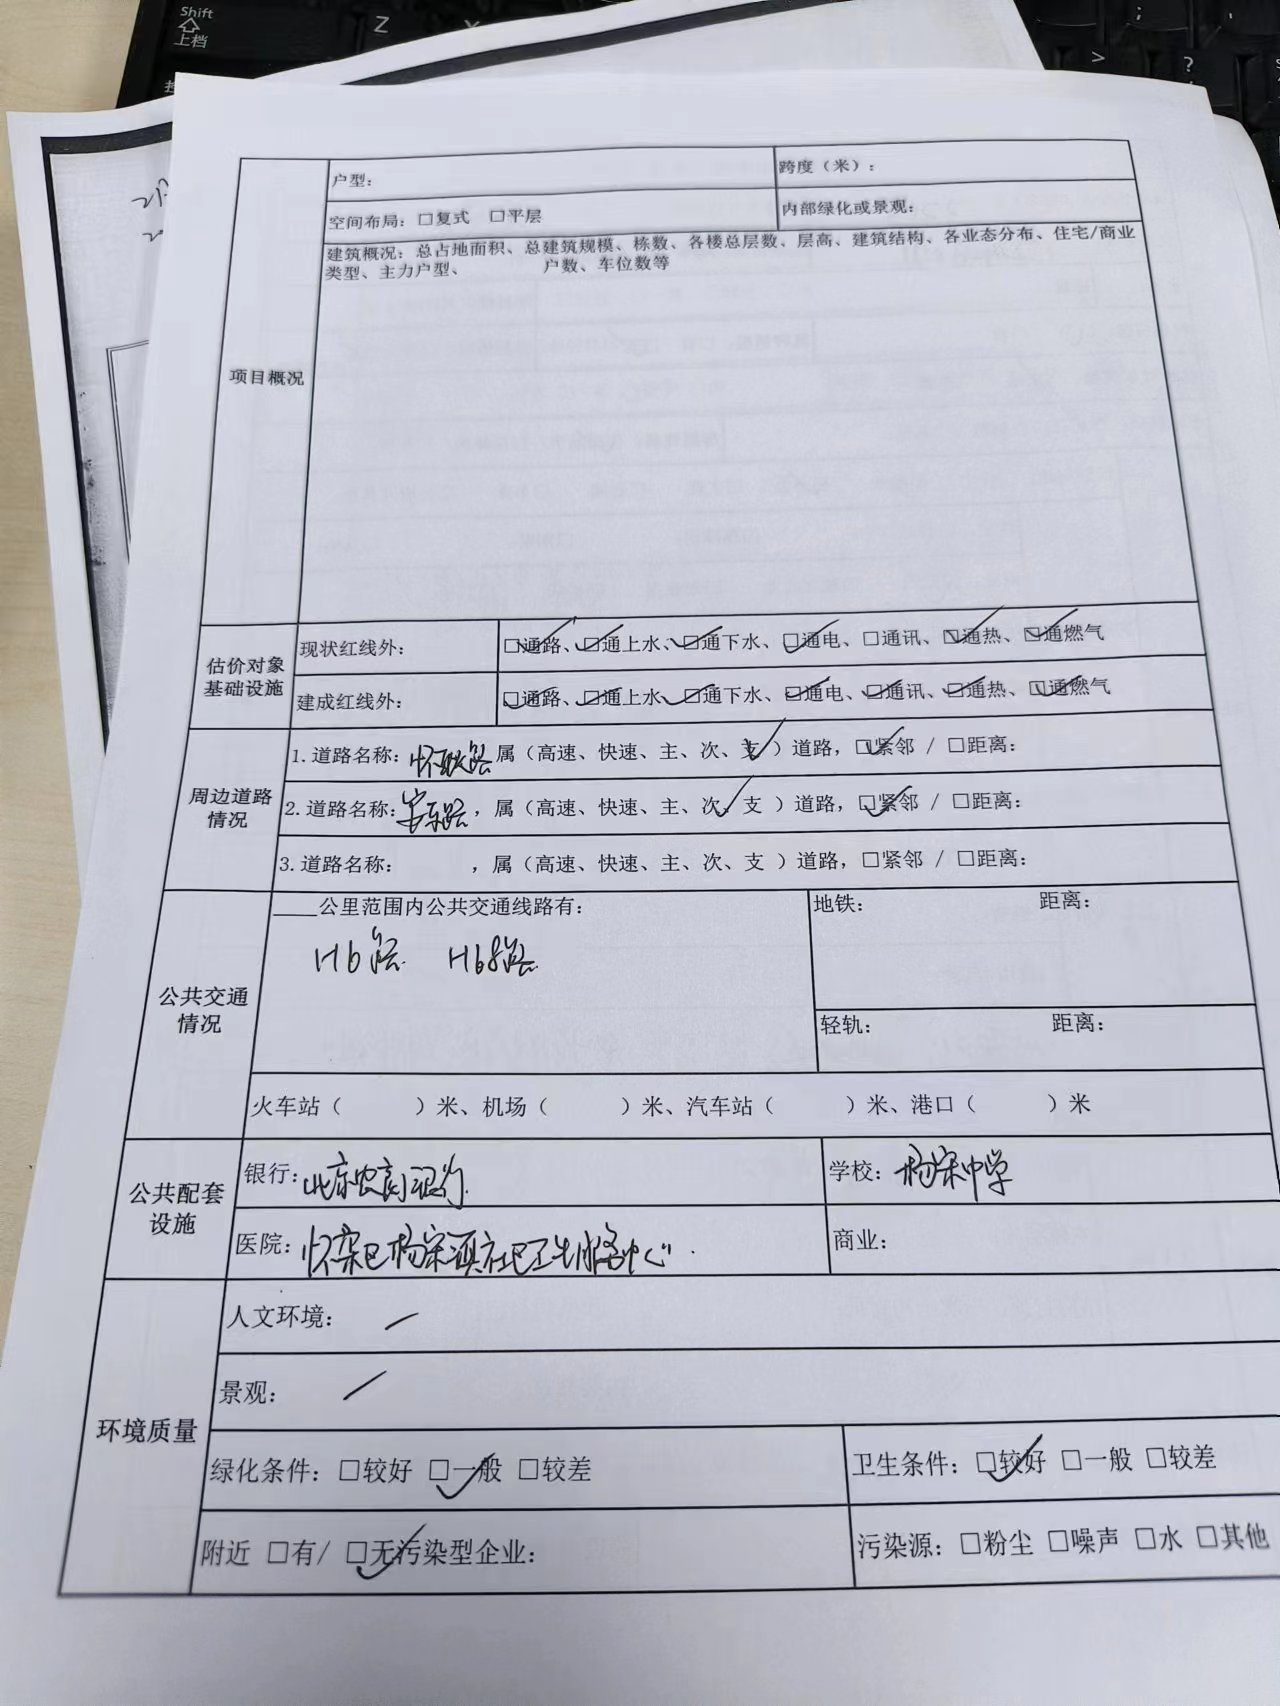 Shift
上档
Z
X
>
?
;
户型：
跨度（米）：
空间布局：□复式 □平层
内部绿化或景观：
建筑概况：总占地面积、总建筑规模、栋数、各楼总层数、层高、建筑结构、各业态分布、住宅/商业
类型、主力户型、 户数、车位数等
项目概况
估价对象
基础设施
现状红线外：
☑通路、☑通上水、☑通下水、☑通电、□通讯、☑通热、☑通燃气
建成红线外：
☑通路、☑通上水、☑通下水、☑通电、☑通讯、☑通热、☑通燃气
周边道路
情况
1.道路名称： 路 属（高速、快速、主、次、支✓）道路，☑紧邻 / □距离：
2.道路名称：安乐路，属（高速、快速、主、次✓、支 ）道路，☑紧邻 / □距离：
3.道路名称： ，属（高速、快速、主、次、支 ）道路，□紧邻 / □距离：
公共交通
情况
____公里范围内公共交通线路有：
H6路 H68路
地铁： 距离：
轻轨： 距离：
火车站（ ）米、机场（ ）米、汽车站（ ）米、港口（ ）米
公共配套
设施
银行：北京农商银行
学校：杨宋中学
医院：怀柔区杨宋镇社区卫生服务中心
商业：
环境质量
人文环境： /
景观： /
绿化条件：□较好 ☑一般 □较差
卫生条件：☑较好 □一般 □较差
附近 □有/ ☑无污染型企业：
污染源：□粉尘 □噪声 □水 □其他